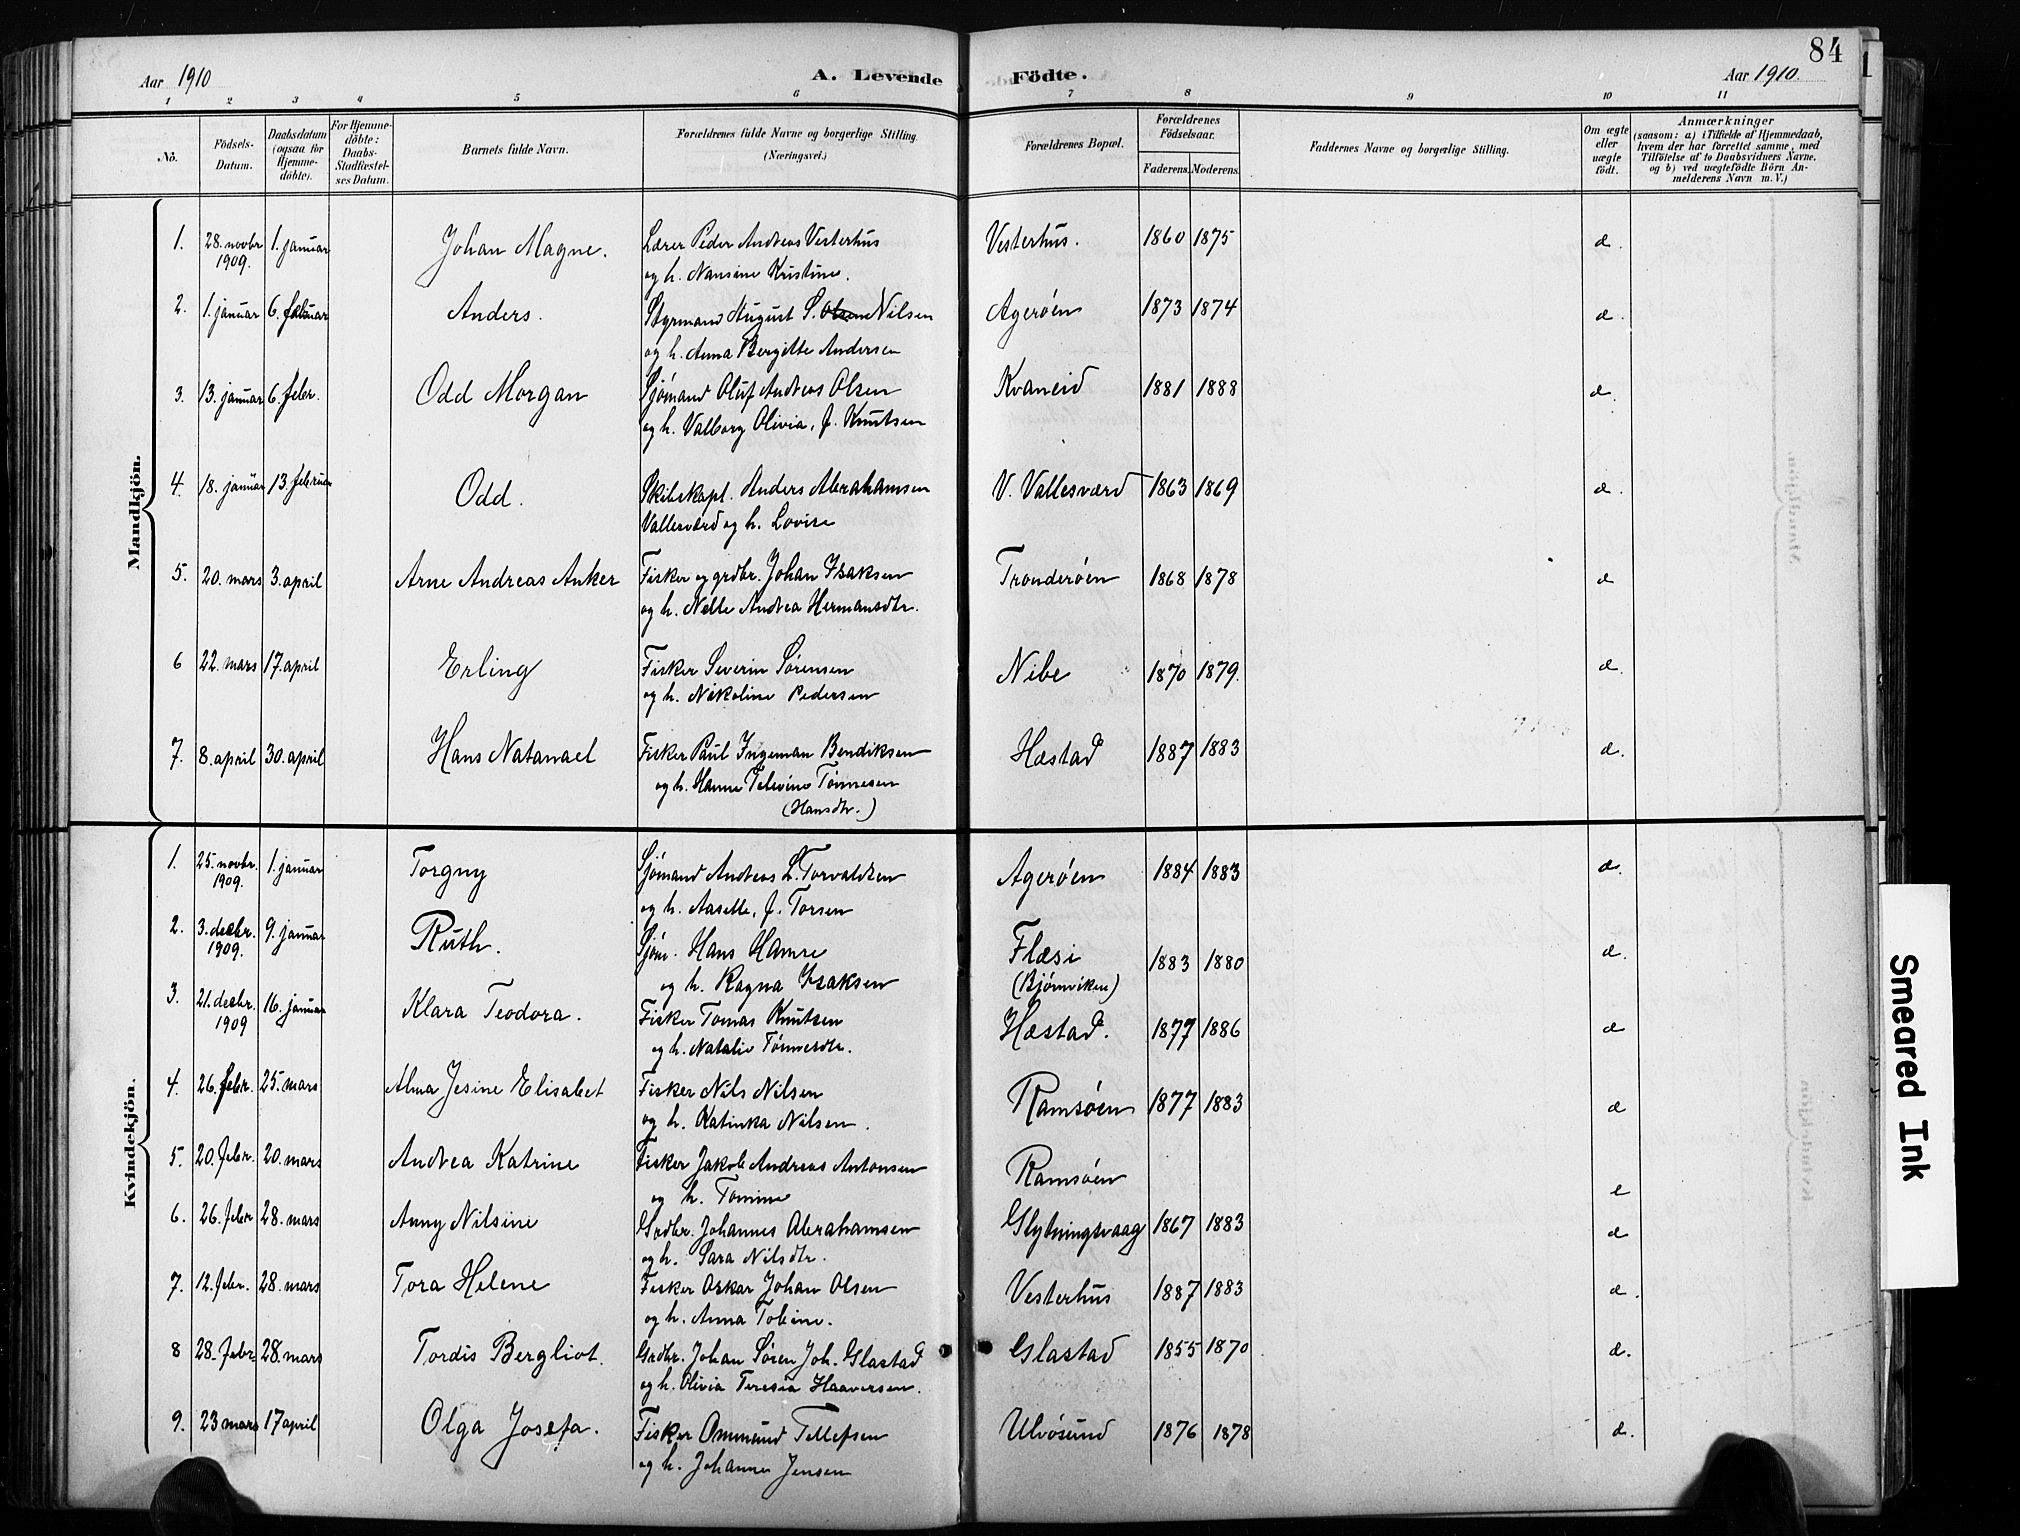 84
Aar 1910
A. Levende Födte.
Aar 1910.
1 2 3 4 5 6 7 8 9 10 11
No.
Födsels-
Datum.
Daabsdatum
(ogsaa for
Hjemme-
döbte).
For Hjemme-
döbte:
Daabs-
Stadfæstel-
ses Datum.
Barnets fulde Navn.
Forældrenes fulde Navne og borgerlige Stilling.
(Næringsvei.)
Forældrenes Bopæl.
Forældrenes
Födselsaar.
Faderens. Moderens.
Faddernes Navne og borgerlige Stilling.
Om ægte
eller
uægte
födt.
Anmærkninger
(saasom: a) i Tilfælde af Hjemmedaab,
hvem der har forrettet samme, med
Tilföielse af to Daabsvidners Navne,
og b) ved uægtefödte Börn An-
melderens Navn m. V.)
Mandkjön.
1. 28. novbr 1. januar Johan Magne. Lærer Peder Andreas Vesterhus Vesterhus. 1860 1875 æ.
1909. og h. Nansine Kristine.
2. 1. januar 6. februar Anders. Styrmand August S. Olsen Nilsen Agerøen 1873 1874 æ.
og h. Anna Bergitte Andersen
3. 13. januar 6. febr. Odd Morgan Sjømand Oluf Andreas Olsen Kvaneid 1881 1888 æ.
og h. Valborg Olivia, f. Knutsen
4. 18. januar 13. februar Odd. Skibskapt. Anders Abrahamsen V. Vallesværd 1863 1869 æ.
Vallesværd og h. Lovise
5. 20. mars 3. april Arne Andreas Anker Fisker og grdbr. Johan Isaksen Tronderöen 1868 1878 æ
og h. Nelle Andrea Hermansdtr.
6 22. mars 17. april Erling Fisker Severin Sørensen Nibe 1870 1879. æ.
og h. Nikoline Pedersen
7. 8. april 30. april Hans Natanael Fisker Paul Ingeman Bendiksen Hæstad 1887 1883 æ.
og h. Hanne Televine Tønnesen
(Hansdtr.)
Kvindekjön.
1. 25. novbr. 1. januar Torgny Sjømand Andreas L. Torvaldsen Agerøen 1884 1883 æ.
1909. og h. Aasette, f. Torsen
2. 3. decbr. 9. januar Ruth. Sjøm. Hans Hamre Flæsi 1883 1880 æ.
1909. og h. Ragna Isaksen (Bjørnviken)
3. 21. decbr. 16. januar Klara Teodora. Fisker Tomas Knutsen Hæstad. 1877 1886 æ
1909 og h. Natalie Tønnesdtr.
4. 26. febr. 25. mars Alma Jesine Elisabet Fisker Nils Nilsen Ramsøen 1877 1883 æ
og h. Katinka Nilsen.
5. 20. febr. 20. mars Andrea Katrine Fisker Jakob Andreas Antonsen Ramsøen æ
og h. Tomine
6. 26. febr 28. mars Anny Nilsine Grdbr. Johannes Abrahamsen Glybningsvaag 1867 1883 æ
og h. Sara Nilsdtr.
7. 12. febr. 28. mars Tora Helene Fisker Oskar Johan Olsen Vesterhus 1887 1883 æ.
og h. Anna Tobine.
8 28. febr. 28. mars Tordis Bergliot. Grdbr. Johan Søren Joh. Glastad Glastad 1855 1870 æ.
og h. Olivia Teresia Haaversen.
9. 23 mars 17 april Olga Josefa. Fisker Ommund Tellefsen Ulvøsund 1876 1878 æ.
og h. Johanne Jensen
Smeared Ink